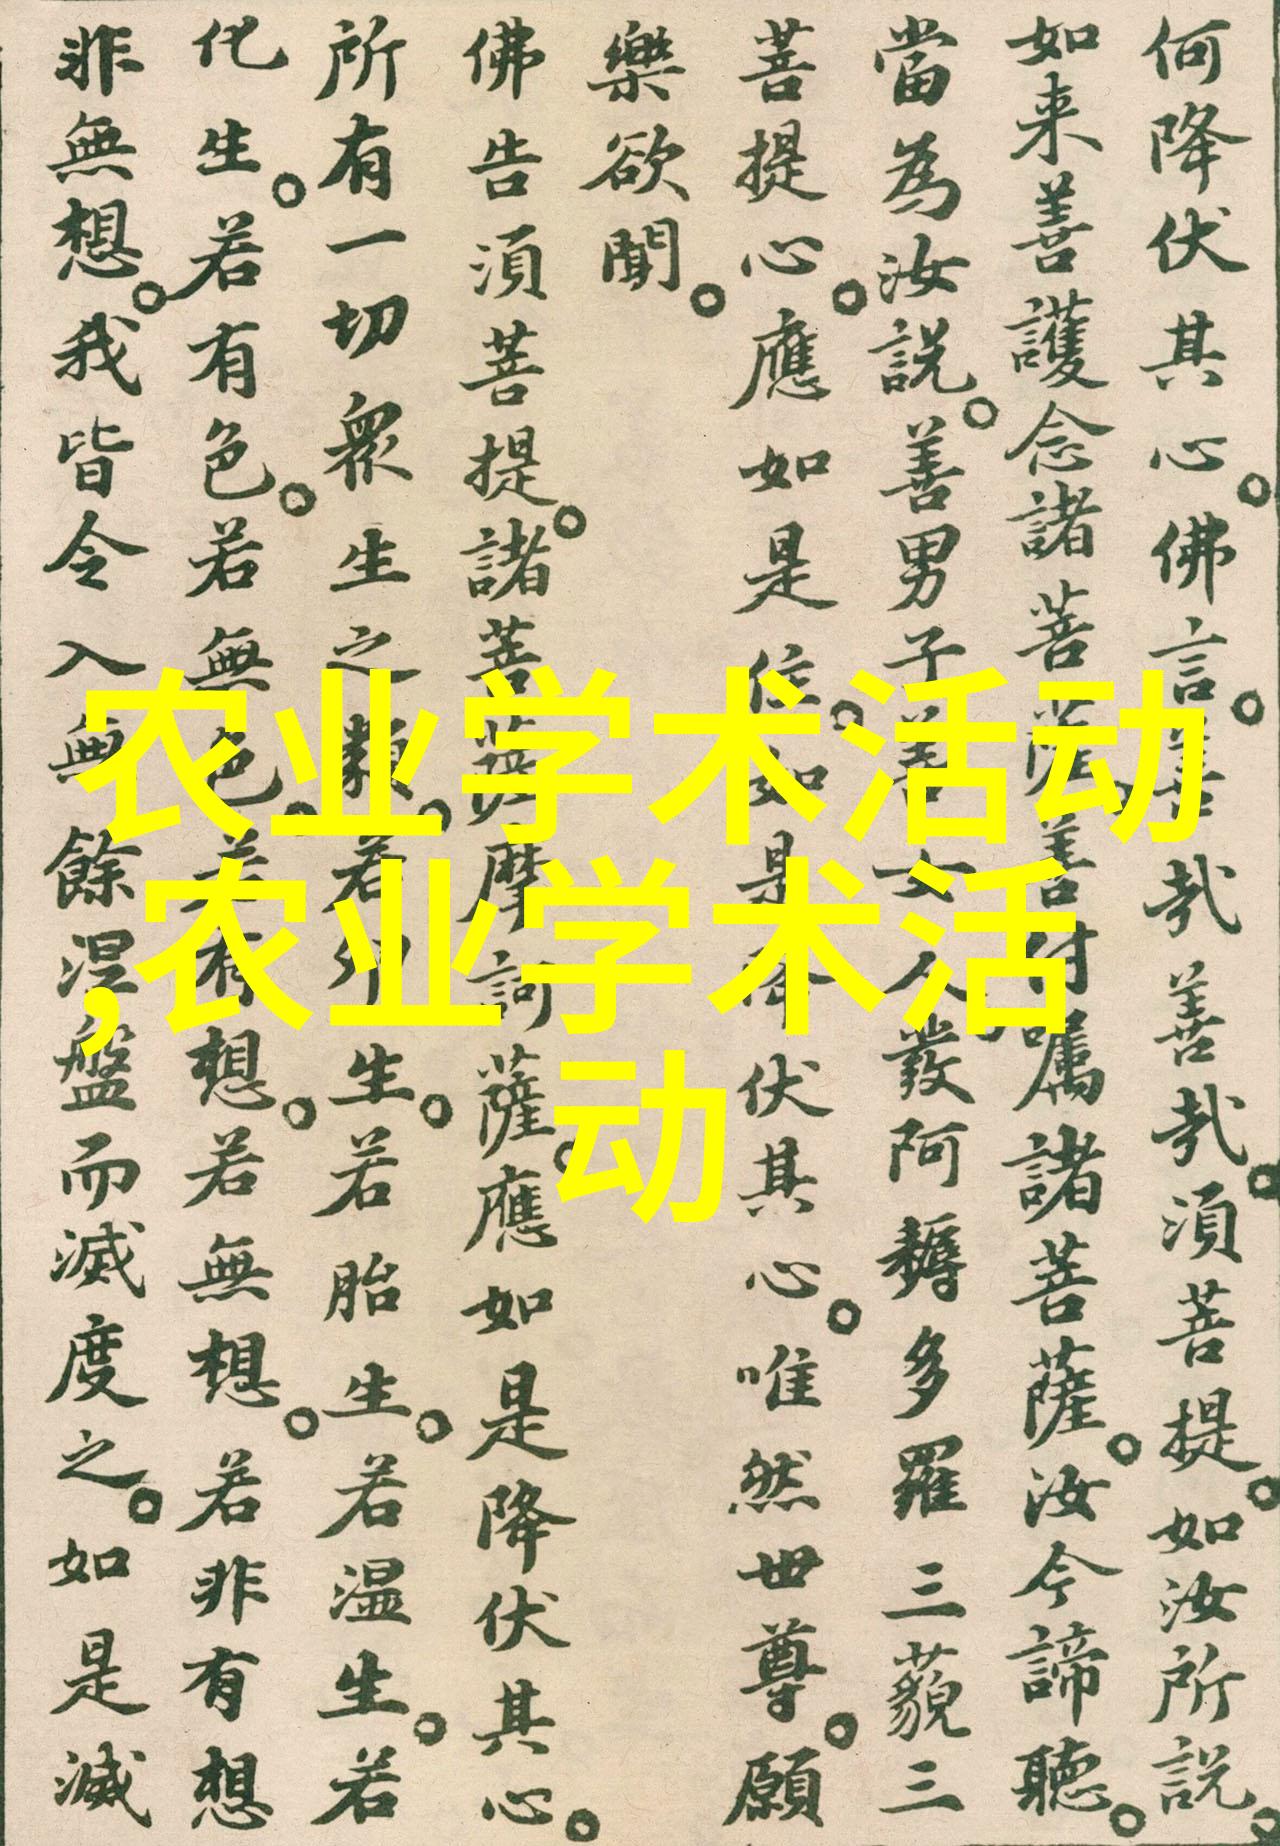 何降伏其心。佛言。善哉善哉。須菩提。如汝所說。
如来善護念諸菩薩。善付囑諸菩薩。汝今諦聽。
當為汝説。善男子善女人。發阿耨多羅三藐三
菩提心。應如是住。如是降伏其心。唯然世尊。願
樂欲聞。
佛告須菩提。諸菩薩摩訶薩。應如是降伏其心。
所有一切眾生之類。若卵生。若胎生。若温生。若
化生。若有色。若無色。若有想。若無想。若非有想
非無想。我皆令入無餘涅盤而滅度之。如是滅
农业学术活动
,农业学术活
动